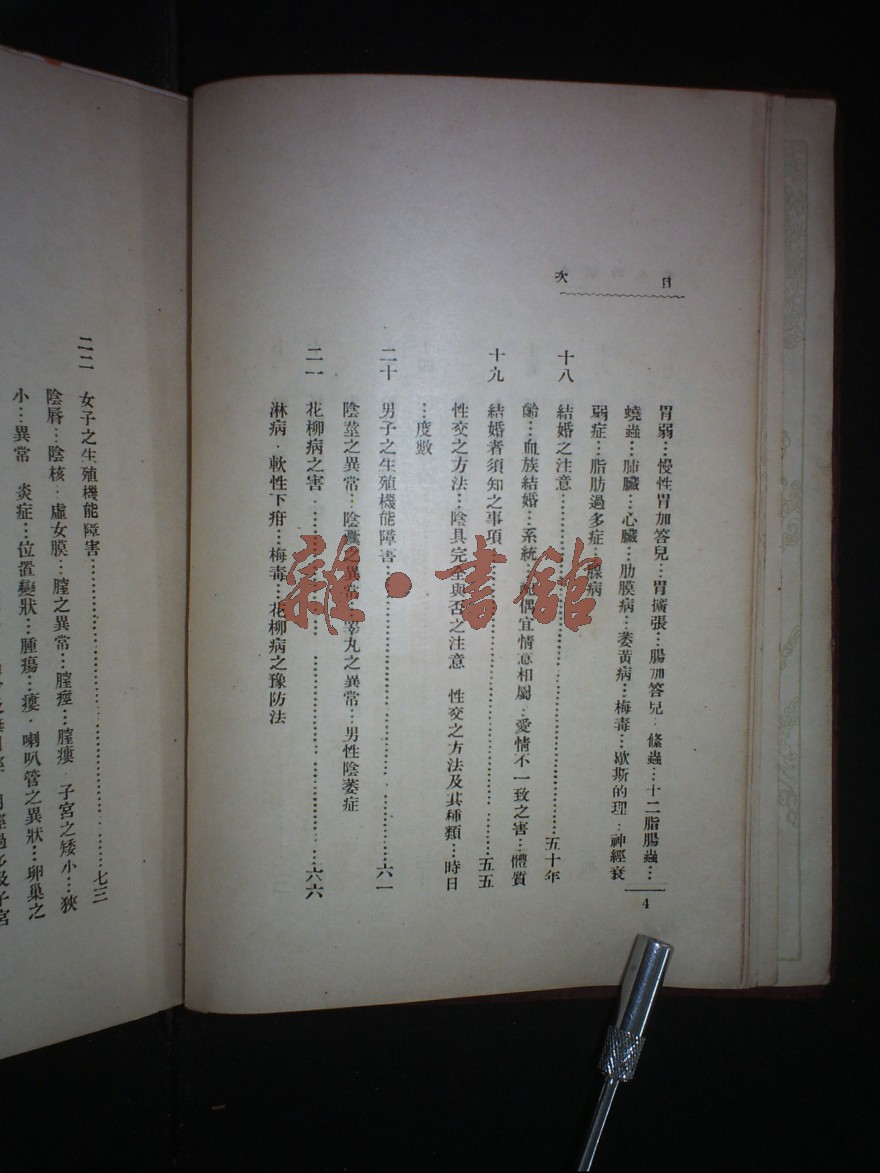 目次
胃弱…慢性胃加答兒…胃擴張…腸加答兒…絛蟲…十二脂腸蟲…
蟯蟲…肺臟…心臟…肋膜病…萎黃病…梅毒…歇斯的理…神經衰
弱症…脂肪過多症…腺病
十八 結婚之注意……五十年
齡…血族結婚…系統…配偶宜情意相屬…愛情不一致之害…體質
十九 結婚者須知之事項……五五
性交之方法…陰具完全與否之注意 性交之方法及其種類…時日
…度數
二十 男子之生殖機能障害……六一
陰莖之異常…陰囊之異常…睾丸之異常…男性陰萎症
二一 花柳病之害……六六
淋病·軟性下疳…梅毒…花柳病之豫防法
4
二二 女子之生殖機能障害……七三
陰唇…陰核…處女膜…膣之異常…膣痙…膣瘻 子宮之矮小…狹
小…異常 炎症…位置變狀…腫瘍…瘻·喇叭管之異狀…卵巢之
雜·書館